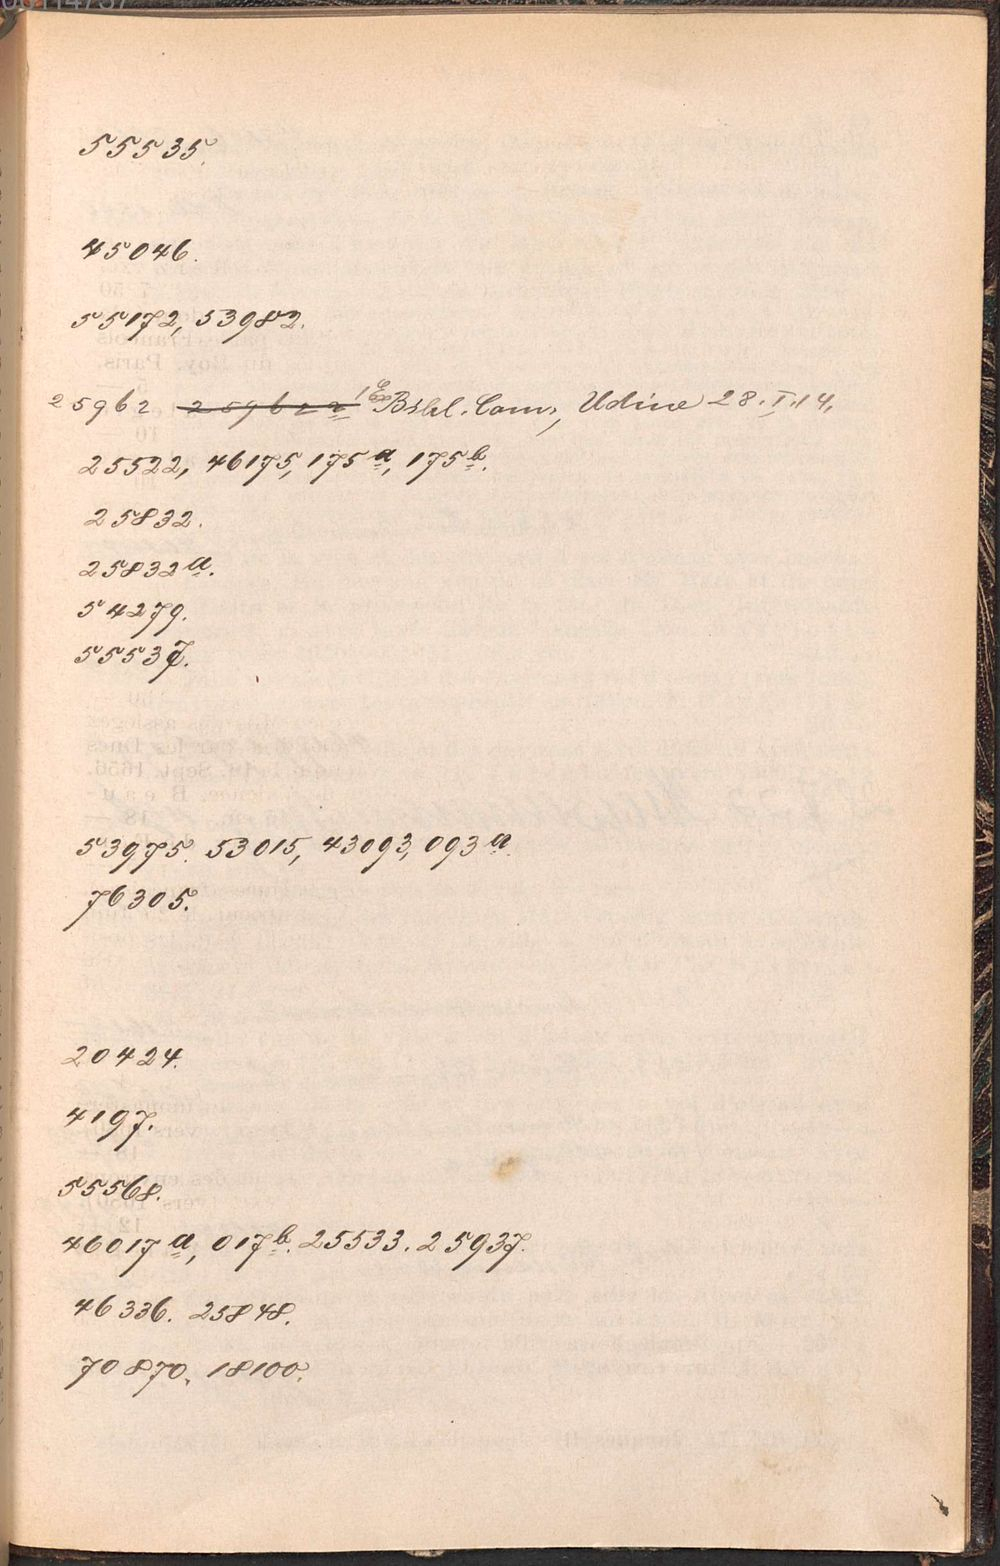 55535.
45046.
55172, 53982.
25962 25962a 1 Ex Bibl. Com., Udine 28.I.14.
25522, 46175, 175a, 175b.
25832.
25832a.
54279.
55537.
53975. 53015, 43093, 093a.
76305.
20424.
4197.
55568.
46017a, 017b. 25533. 25937.
46336. 25848.
70870. 18100.